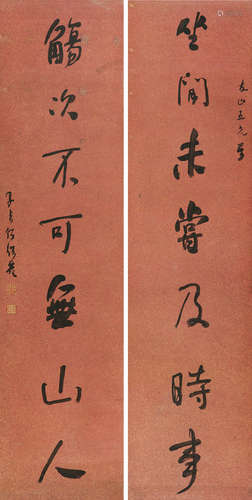 友山五兄属
坐閒未嘗及時事
觴次不可無山人
子貞何紹基